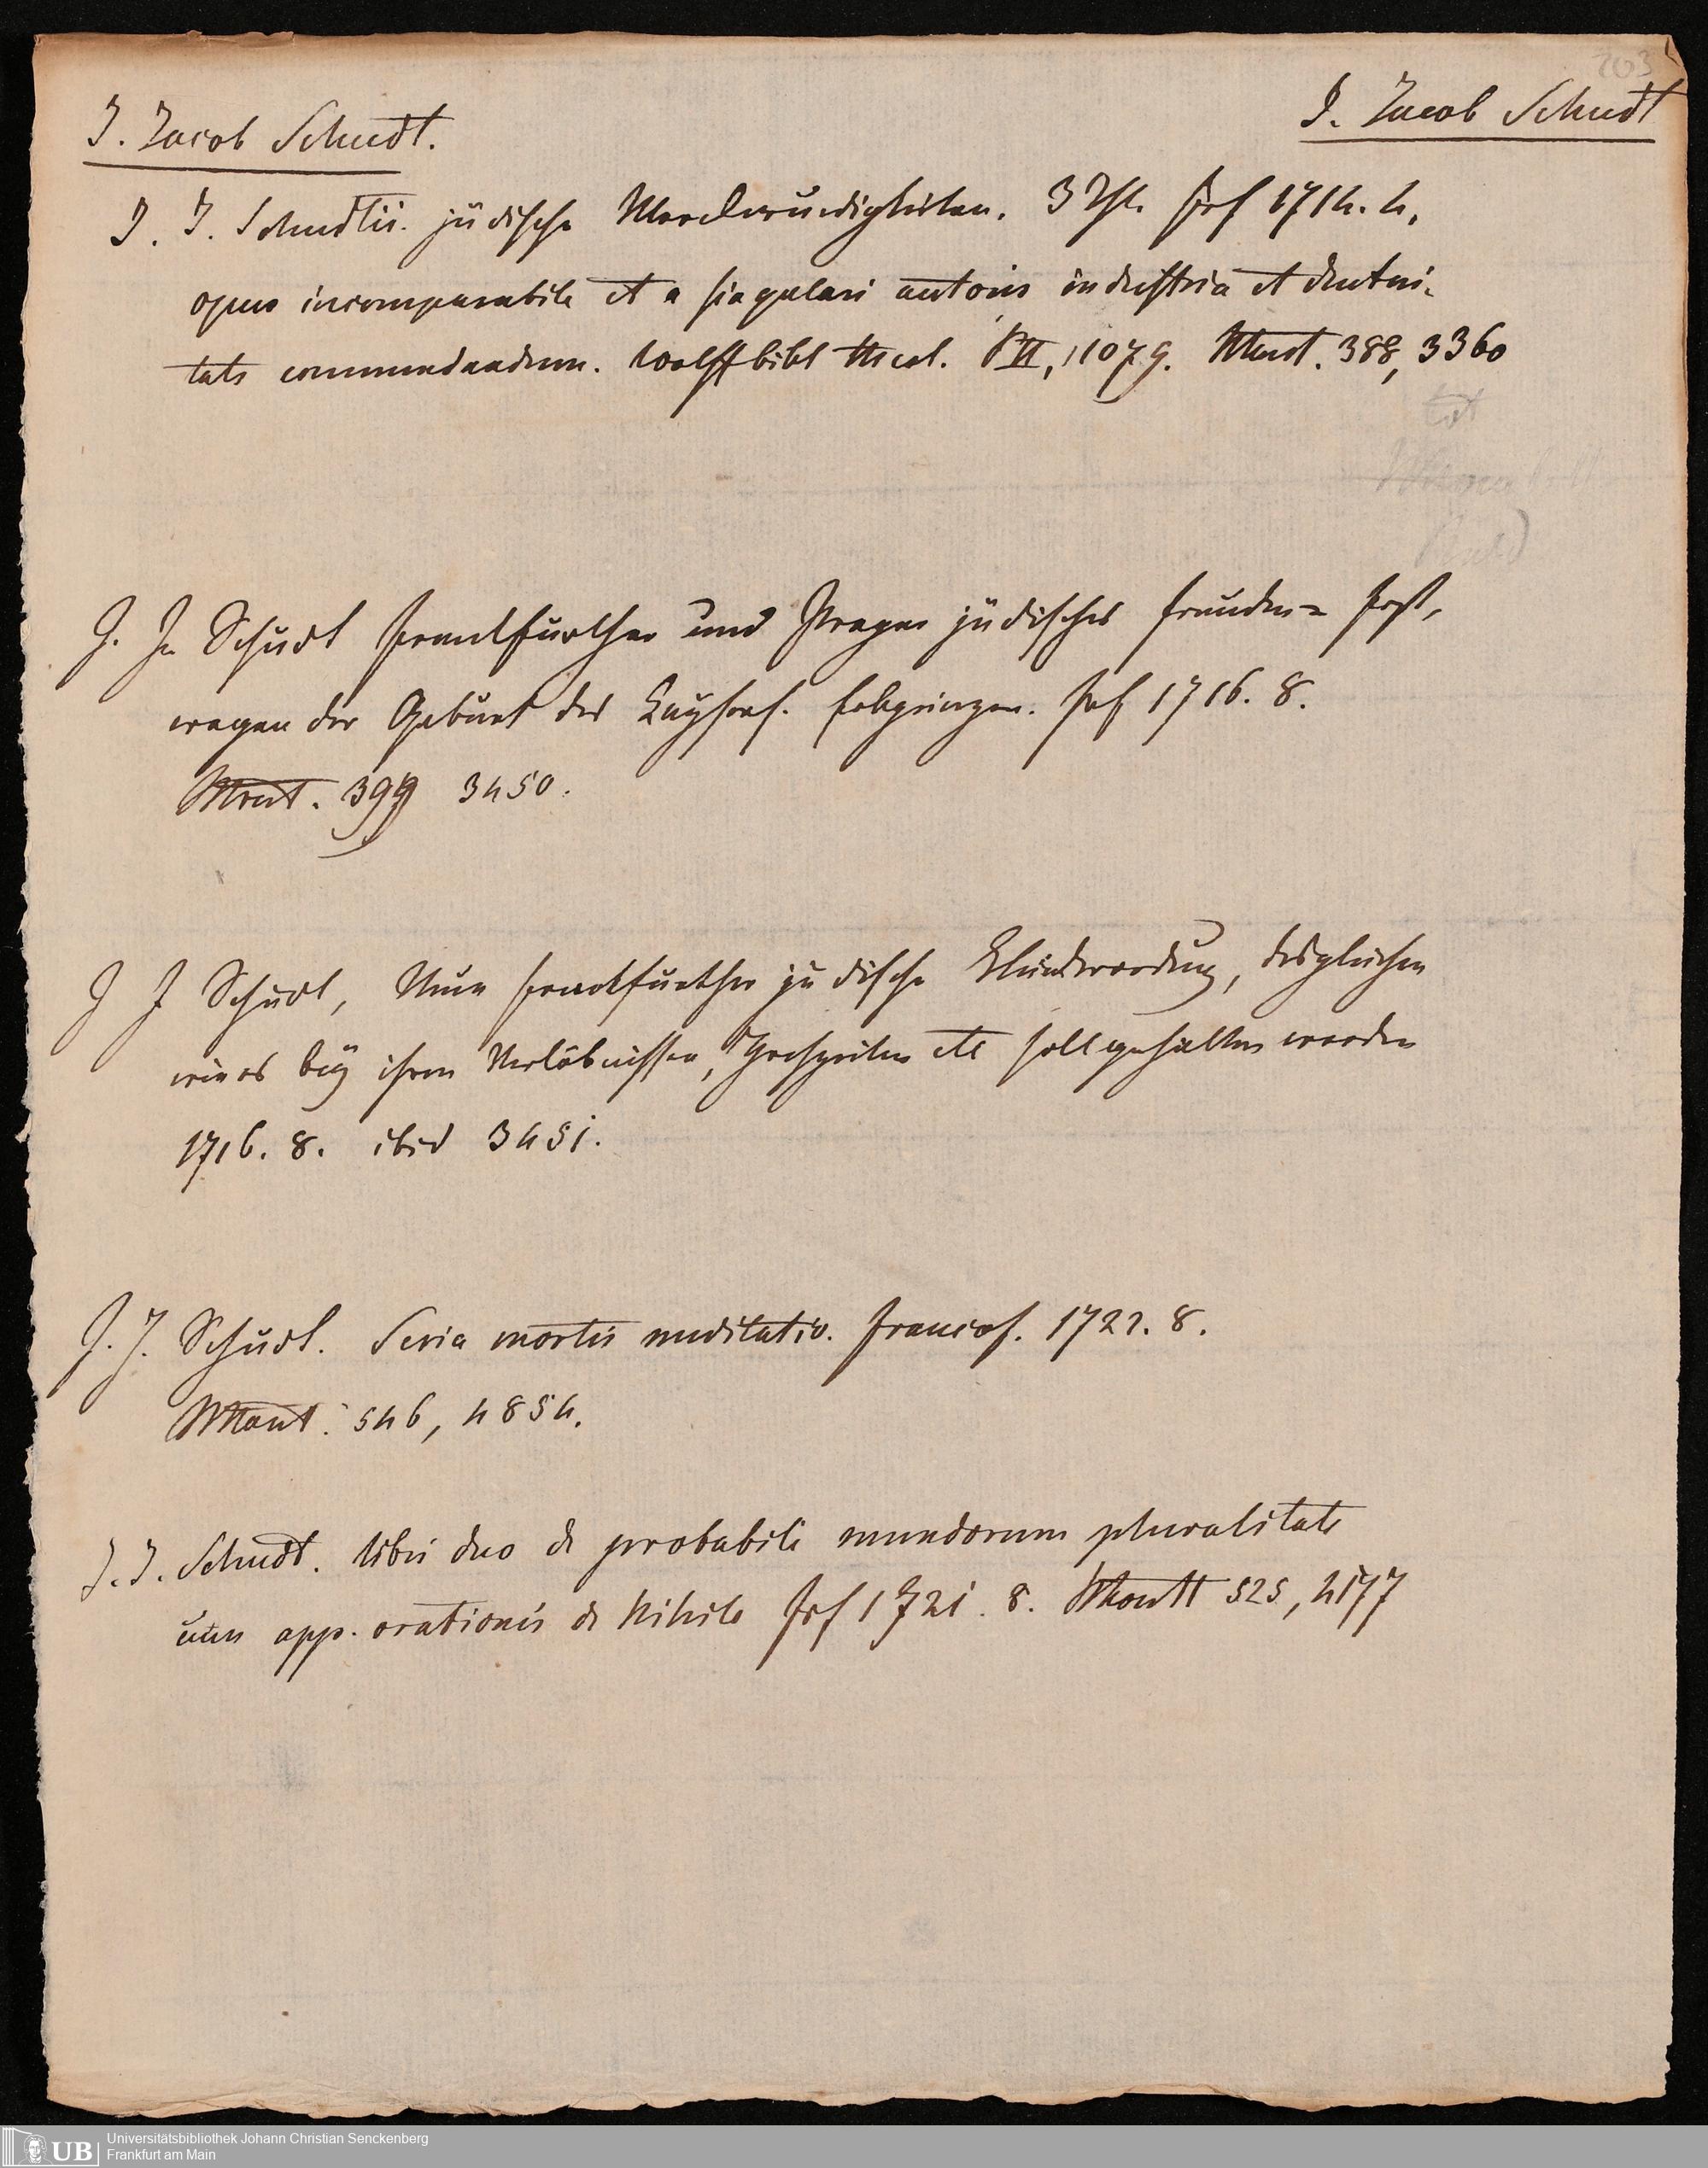 203
J. Jacob Schudt.
J. Jacob Schudt
J. J. Schudtii. jüdische Merckwürdigkeiten. 3 Thl. Frf 1714. 4,
opus incomparabile et a singulari autoris industria et dexteri-
tate commendandum. Wolff bibl P II, 1079. 388, 3360
tot
J. J. Schudt Franckfurther und Prager jüdisches Freuden- Fest,
wegen der Geburt des Kayserl. Erbprinzen. Frf 1716. 8.
399 3450.
J J Schudt, Neue Franckfurther jüdische Kleiderordnung, desgleichen
wie es bey ihren Verlöbnissen, Hochzeiten etc soll gehalten werden
1716. 8. ibid 3451.
J. J. Schudt. Seria mortis meditatio. Francof. 1722. 8.
546, 4854.
J. J. Schudt. libri duo de probabili mundorum pluralitate
cum app. orationis de Nihilo Frf 1721. 8. 525, 4177
UB
Universitätsbibliothek Johann Christian Senckenberg
Frankfurt am Main